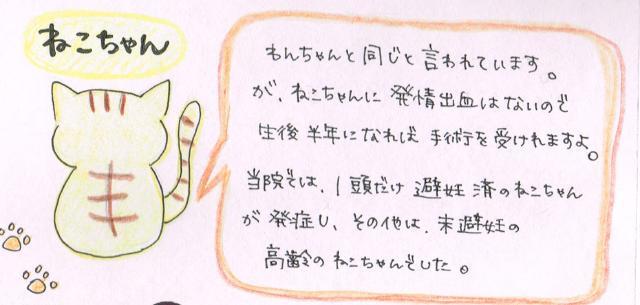 ねこちゃん
わんちゃんと同じと言われています。
が、ねこちゃんに発情出血はないので
生後半年になれば手術を受けれますよ。
当院では、1頭だけ避妊済のねこちゃん
が発症し、その他は、末避妊の
高齢のねこちゃんでした。